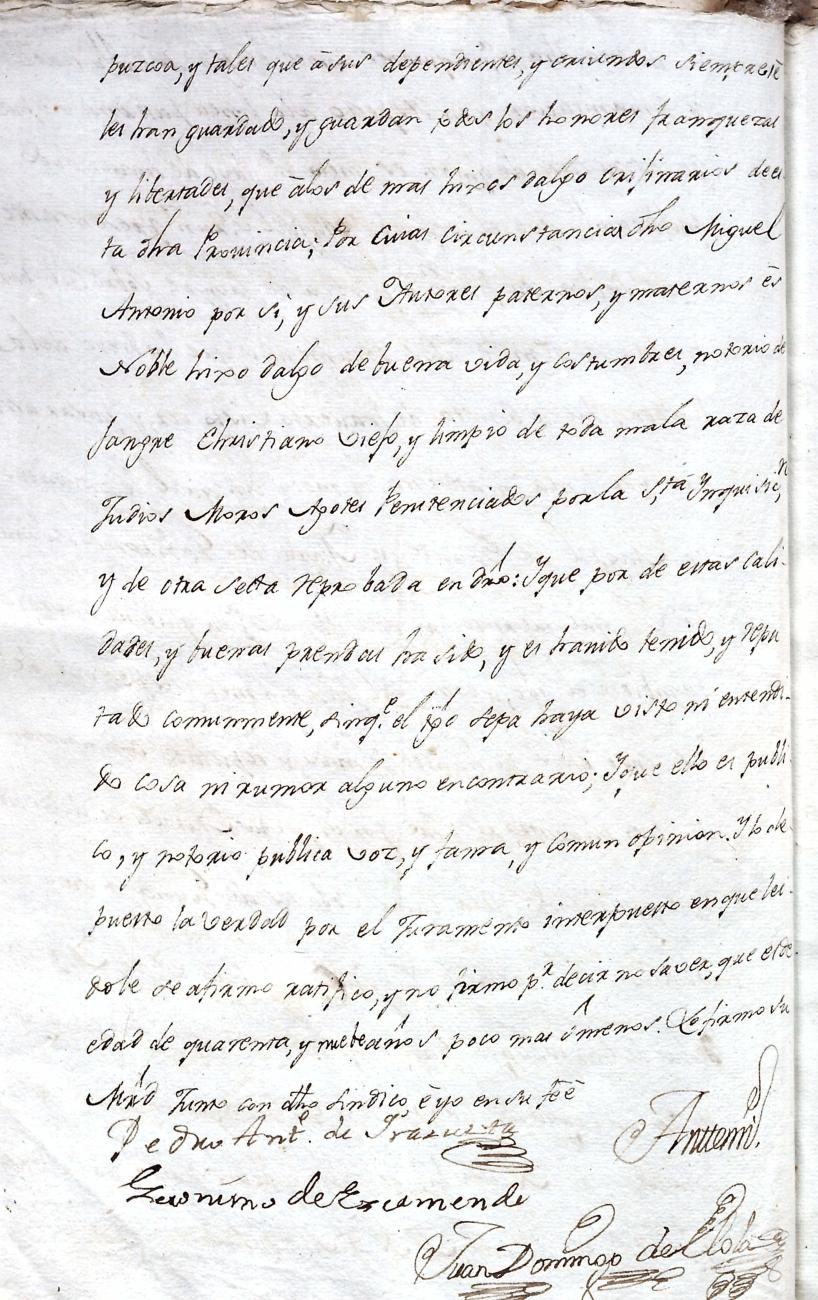 puzcoa, y tales que â sus dependientes, y oriundos siempre sê
les han guardado, y guardan todos los honores franquezas
y libertades, que âlos de mas hixos dalgo orijinarios de es
ta dha Provincia; Por cuias circunstancias dho Miguel
Antonio por si, y sus Autores paternos, y maternos ês
Noble hixo dalgo de buena vida, y costumbres, notorio de
sangre Christiano viejo, y limpio de toda mala raza de
Judios Moros Agotes Penitenciados por la Sta Ynquisicn
y de otra secta reprobada en dro: Y que por de estas cali-
dades, y buenas prendas ha sido, y es havido tenido, y repu
tado comunmente, sin qe el tgo sepa haya visto ni entendi-
do cosa ni rumor alguno encontrario; Y que ello es publi
co, y notorio publica voz, y fama, y comun opinion. Y lo de-
puesto la verdad por el Juramento interpuesto en que lei-
dole se afirmo ratifico, y no firmo pr decir no saver, que es de
edad de quarenta, y nuebe años poco mas ô menos. Lo firmo su
Mrd Junto con dho sindico, ê yo en su feê
Pedro Anto. de Yrazusta
Anttemi.
Geronimo de
Juan Domingo de